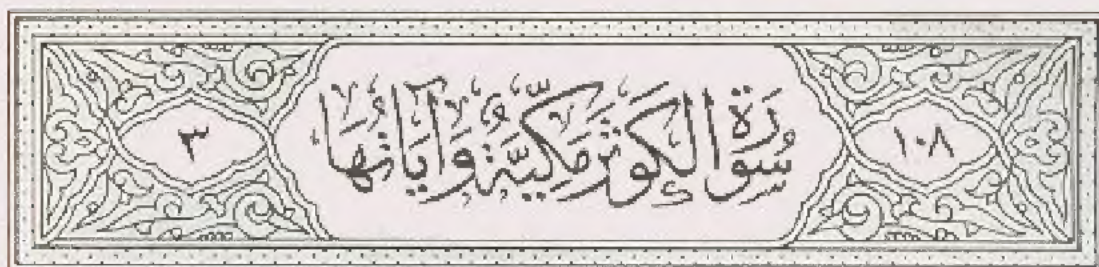 ١٠٨
سُورَةُ الْكَوْثَرِ مَكِّيَّةٌ وَآيَاتُهَا
٣